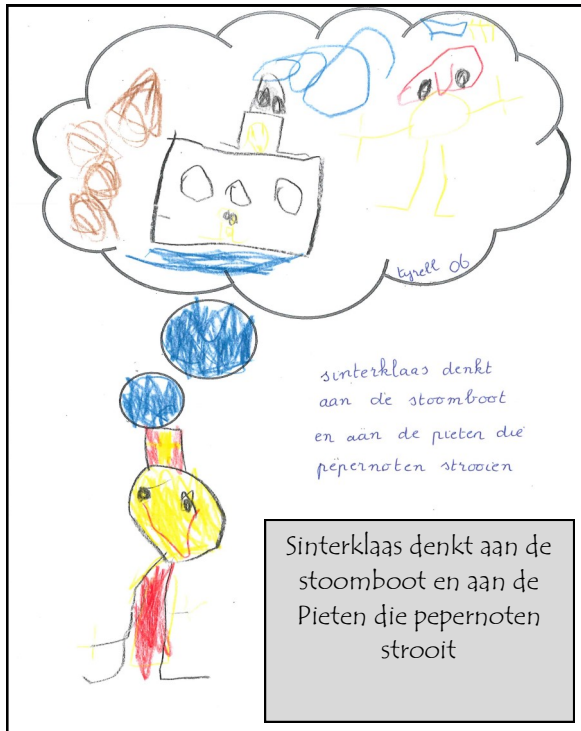 tyrell 06
sinterklaas denkt
aan de stoomboot
en aan de pieten die
pepernoten strooien
Sinterklaas denkt aan de
stoomboot en aan de
Pieten die pepernoten
strooit